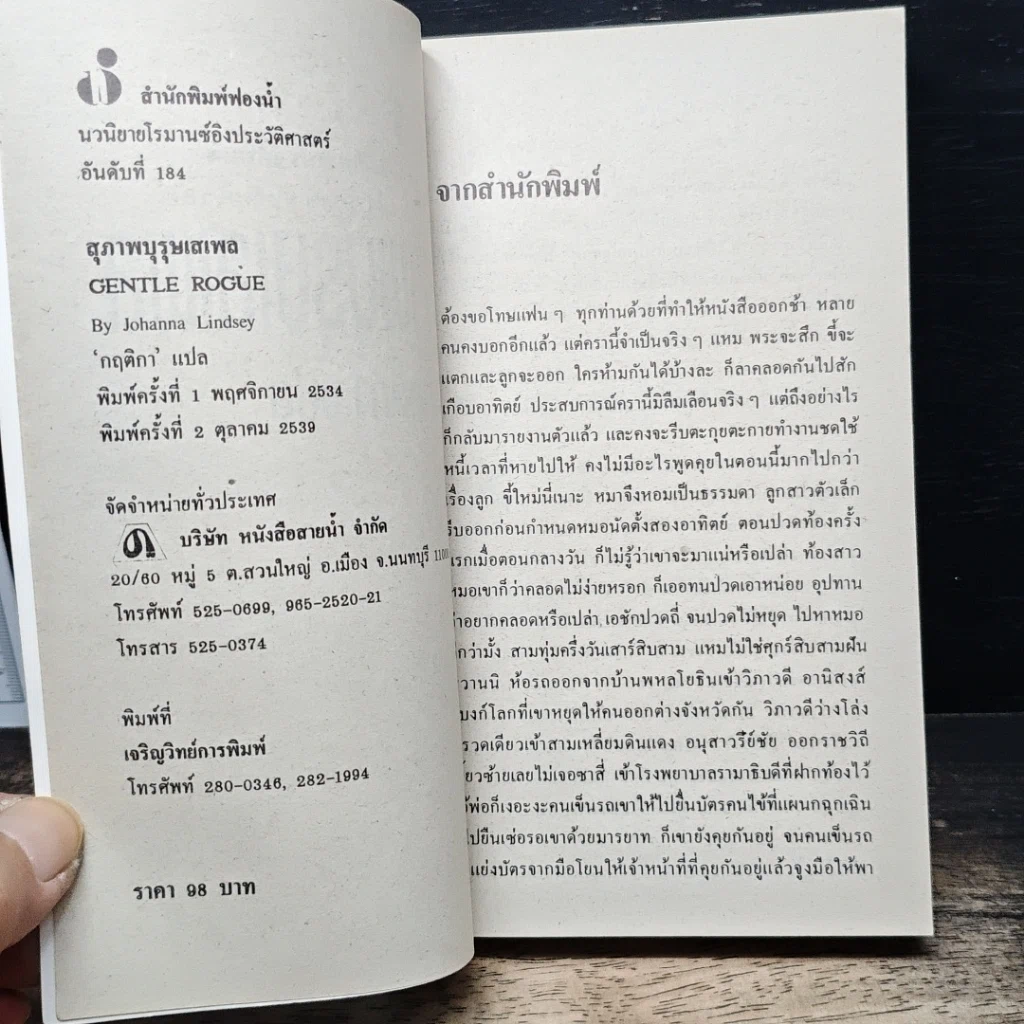 สำนักพิมพ์ฟองน้ำ
นวนิยายโรมานซ์อิงประวัติศาสตร์
อันดับที่ 184
สุภาพบุรุษเสเพล
GENTLE ROGUE
By Johanna Lindsey
‘กฤติกา’ แปล
พิมพ์ครั้งที่ 1 พฤศจิกายน 2534
พิมพ์ครั้งที่ 2 ตุลาคม 2539
จัดจำหน่ายทั่วประเทศ
บริษัท หนังสือสายน้ำ จำกัด
20/60 หมู่ 5 ต.สวนใหญ่ อ.เมือง จ.นนทบุรี
โทรศัพท์ 525-0699, 965-2520-21
โทรสาร 525-0374
พิมพ์ที่
เจริญวิทย์การพิมพ์
โทรศัพท์ 280-0346, 282-1994
ราคา 98 บาท
จากสำนักพิมพ์
ต้องขอโทษแฟน ๆ ทุกท่านด้วยที่ทำให้หนังสือออกช้า หลาย
คนคงบอกอีกแล้ว แต่ครานี้จำเป็นจริง ๆ แหม พระจะสึก ขี้จะ
แตกและลูกจะออก ใครห้ามกันได้บ้างละ ก็ลาคลอดกันไปสัก
เกือบอาทิตย์ ประสบการณ์ครานี้มิลืมเลือนจริง ๆ แต่ถึงอย่างไร
ก็กลับมารายงานตัวแล้ว และคงจะรีบตะกุยตะกายทำงานชดใช้
หนี้เวลาที่หายไปให้ คงไม่มีอะไรพูดคุยในตอนนี้มากไปกว่า
เรื่องลูก ขี้ใหม่นี่เนาะ หมาจึงหอมเป็นธรรมดา ลูกสาวตัวเล็ก
รีบออกก่อนกำหนดหมอนัดตั้งสองอาทิตย์ ตอนปวดท้องครั้ง
แรกเมื่อตอนกลางวัน ก็ไม่รู้ว่าเขาจะมาแน่หรือเปล่า ท้องสาว
หมอเขาก็ว่าคลอดไม่ง่ายหรอก ก็เออทนป่วดเอาหน่อย อุปทาน
ว่าอยากคลอดหรือเปล่า เอชักปวดถี่ จนปวดไม่หยุด ไปหาหมอ
ดีกว่ามั้ง สามทุ่มครึ่งวันเสาร์สิบสาม แหมไม่ใช่ศุกร์สิบสามฝัน
หวานนิ ห้อรถออกจากบ้านพหลโยธินเข้าวิภาวดี อานิสงส์
แบงก์โลกที่เขาหยุดให้คนออกต่างจังหวัดกัน วิภาวดีว่างโล่ง
รวดเดียวเข้าสามเหลี่ยมดินแดง อนุสาวรีย์ชัย ออกราชวิถี
เลี้ยวซ้ายเลยไม่เจอซาสี่ เข้าโรงพยาบาลรามาธิบดีที่ฝากท้องไว้
พ่อก็เงอะงะคนเข็นรถเขาให้ไปยื่นบัตรคนไข้ที่แผนกฉุกเฉิน
ไปยืนเซ่อรอเขาด้วยมารยาท ก็เขายังคุยกันอยู่ จนคนเข็นรถ
แย่งบัตรจากมือโยนให้เจ้าหน้าที่ที่คุยกันอยู่แล้วจูงมือให้พา